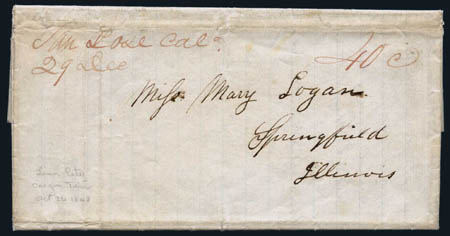 San José Cala
29 Dec
40 c
Miss Mary Logan
Springfield
Illinois
Oregon
Oct 26 1848